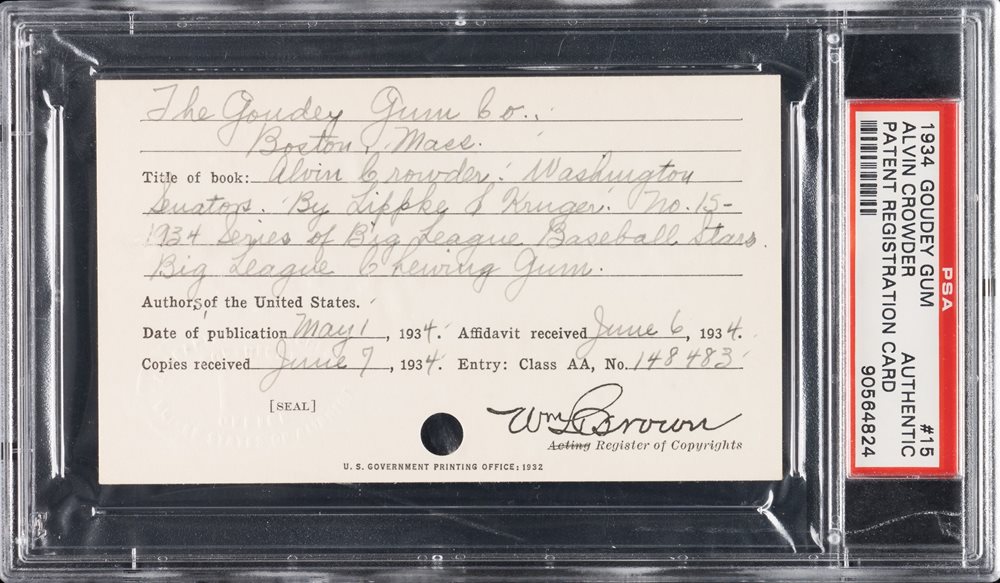 The Goudey Gum Co.,
Boston, Mass.
Title of book: Alvin Crowder. Washington
Senators. By Lippke & Kruger. No. 15-
1934 series of Big League Baseball Stars.
Big League Chewing Gum.
Authors, of the United States.
Date of publication May 1, 1934. Affidavit received June 6, 1934.
Copies received June 7, 1934. Entry: Class AA, No. 148483
[SEAL]
Wm L Brown
Acting Register of Copyrights
U. S. GOVERNMENT PRINTING OFFICE: 1932
PSA
1934 GOUDEY GUM #15
ALVIN CROWDER AUTHENTIC
PATENT REGISTRATION CARD
90564824